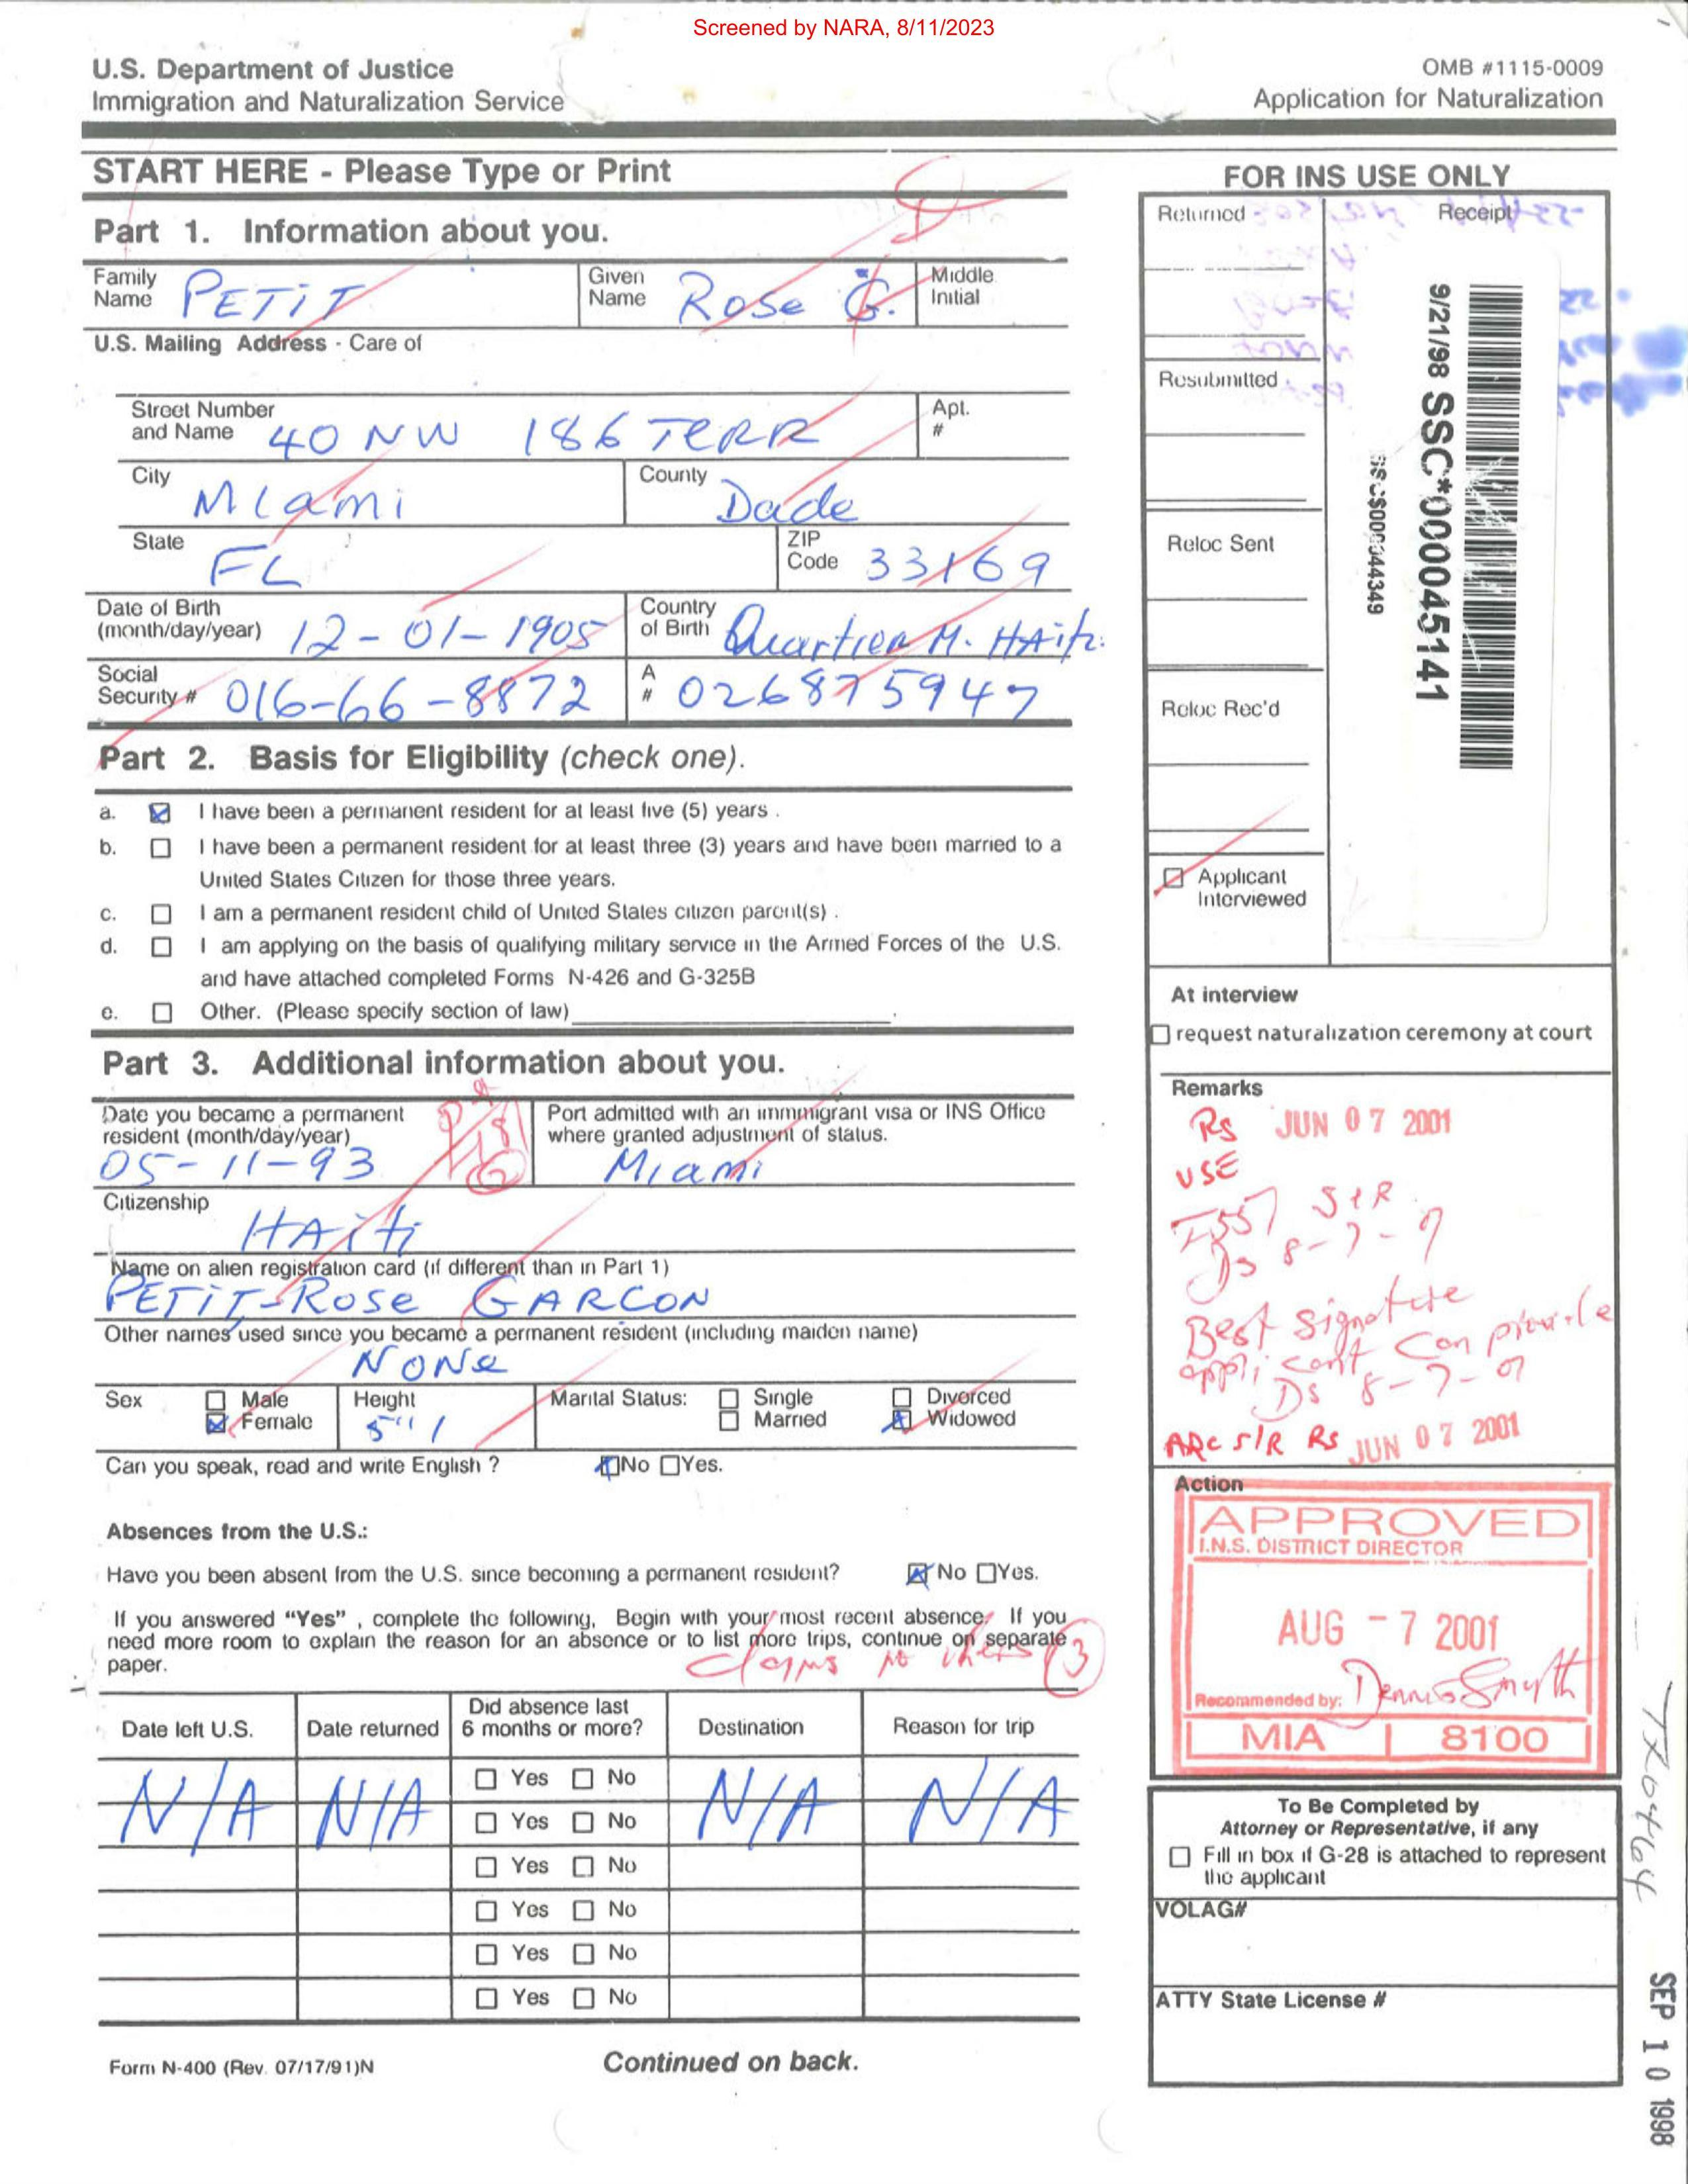 Screened by NARA, 8/11/2023
U.S. Department of Justice
Immigration and Naturalization Service
OMB #1115-0009
Application for Naturalization
START HERE - Please Type or Print
Part 1. Information about you.
Family Name PETIT
Given Name Rose G.
Middle Initial
U.S. Mailing Address - Care of
Street Number and Name 40 NW 186 TERR
Apt. #
City Miami
County Dade
State FL
ZIP Code 33169
Date of Birth (month/day/year) 12-01-1905
Country of Birth Quartier M. HAiti.
Social Security # 016-66-8872
A # 026875947
Part 2. Basis for Eligibility (check one).
a. I have been a permanent resident for at least five (5) years .
b. I have been a permanent resident for at least three (3) years and have been married to a
United States Citizen for those three years.
c. I am a permanent resident child of United States citizen parent(s) .
d. I am applying on the basis of qualifying military service in the Armed Forces of the U.S.
and have attached completed Forms N-426 and G-325B
e. Other. (Please specify section of law)
Part 3. Additional information about you.
Date you became a permanent resident (month/day/year) 05-11-93
Port admitted with an immigrant visa or INS Office
where granted adjustment of status.
Miami
Citizenship
HAiti
Name on alien registration card (if different than in Part 1)
PETiT-ROSE GARCON
Other names used since you became a permanent resident (including maiden name)
NONe
Sex Male Female
Height 5"1
Marital Status: Single Married Divorced Widowed
Can you speak, read and write English ? No Yes.
Absences from the U.S.:
Have you been absent from the U.S. since becoming a permanent resident? No Yes.
If you answered “Yes” , complete the following, Begin with your most recent absence. If you
need more room to explain the reason for an absence or to list more trips, continue on separate
paper.
claims no others 3
Date left U.S.
Date returned
Did absence last 6 months or more?
Destination
Reason for trip
N/A N/A Yes No N/A N/A
Yes No
Yes No
Yes No
Yes No
Yes No
Form N-400 (Rev. 07/17/91)N
Continued on back.
FOR INS USE ONLY
Returned
Receipt
Resubmitted
Reloc Sent
Reloc Rec'd
Applicant Interviewed
9/21/98 SSC*000045141
At interview
request naturalization ceremony at court
Remarks
Rs JUN 07 2001
USE
I551 S&R
Ds 8-7-01
Best signature
applicant can provide
Ds 8-7-01
ARC S/R Rs JUN 07 2001
Action
APPROVED
I.N.S. DISTRICT DIRECTOR
AUG -7 2001
Recommended by: Dennis Smyth
MIA 8100
To Be Completed by
Attorney or Representative, if any
Fill in box if G-28 is attached to represent
the applicant
VOLAG#
ATTY State License #
SEP 10 1998